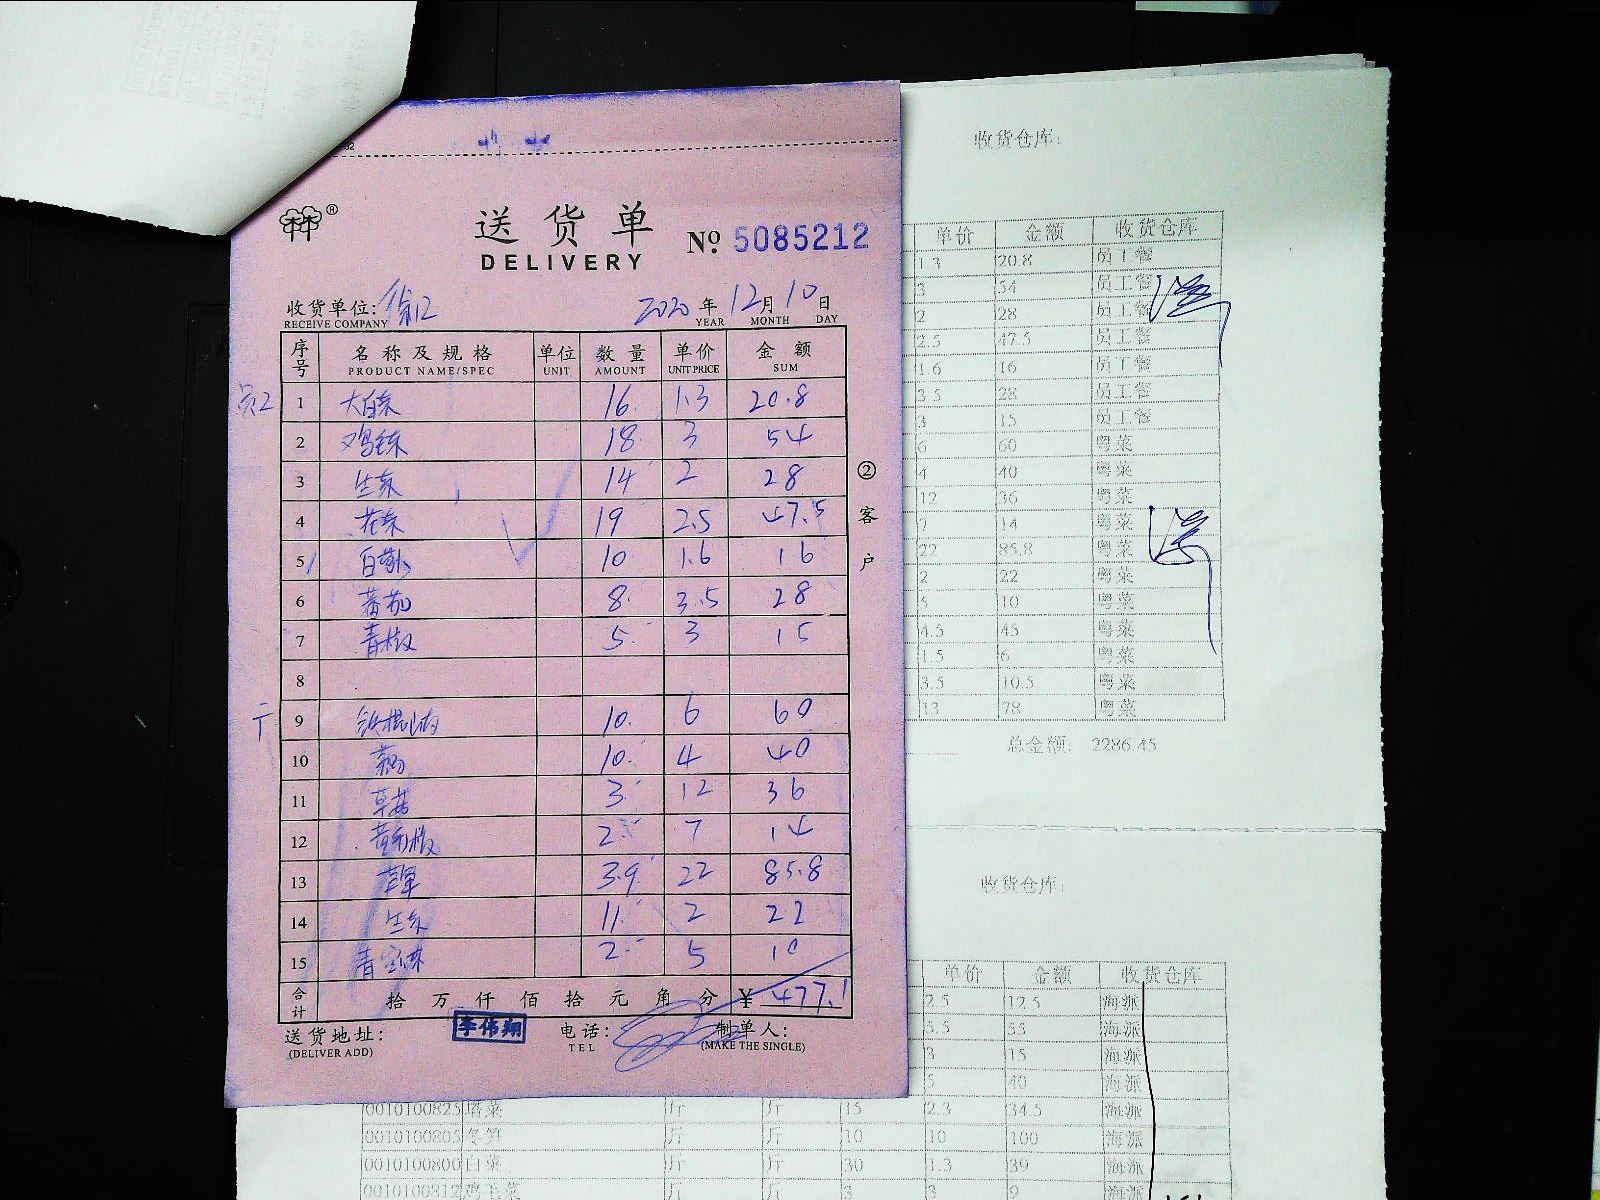 送货单
DELIVERY
№ 5085212
收货单位:
RECEIVE COMPANY
2020 年 12 月 10 日
YEAR MONTH DAY
序号 名称及规格 单位 数量 单价 金额
PRODUCT NAME/SPEC UNIT AMOUNT UNIT PRICE SUM
员工 1 大白菜 16 1.3 20.8
2 18 3 54
3 生菜 14 2 28
4 花菜 19 2.5 47.5
5 10 1.6 16
6 蕃茄 8 3.5 28
7 青椒 5 3 15
8
9 10 6 60
10 10 4 40
11 3 12 36
12 2 7 14
13 草果 3.9 22 85.8
14 生菜 11 2 22
15 2 5 10
合计 拾万仟佰拾元角分 ¥ 477.1
送货地址: 李伟翔 电话: 制单人:
(DELIVER ADD) TEL (MAKE THE SINGLE)
②客户
收货仓库:
单价 金额 收货仓库
1.3 20.8 员工餐
3 54 员工餐
2 28 员工餐
2.5 47.5 员工餐
1.6 16 员工餐
3.5 28 员工餐
3 15 员工餐
6 60 粤菜
4 40 粤菜
12 36 粤菜
7 14 粤菜
22 85.8 粤菜
2 22 粤菜
5 10 粤菜
4.5 45 粤菜
1.5 6 粤菜
3.5 10.5 粤菜
13 78 粤菜
总金额: 2286.45
收货仓库:
单价 金额 收货仓库
2.5 12.5 海派
5.5 55 海派
3 15 海派
5 40 海派
0010100823 塔菜 斤 斤 15 2.3 34.5 海派
0010100805 冬笋 斤 斤 10 10 100 海派
0010100800 白菜 斤 斤 30 1.3 39 海派
0010100812 鸡毛菜 斤 斤 3 3 9 海派